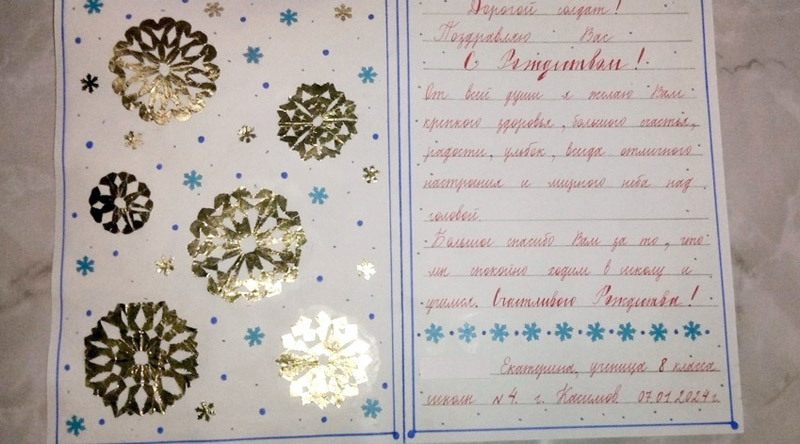 Дорогой солдат!
Поздравляю Вас
С Рождеством!
От всей души я желаю Вам
крепкого здоровья, большого счастья,
радости, улыбок, всегда отличного
настрания и мирного неба над
головой.
Большое спасибо Вам за то, что
мы спокойно ходим в школу и
учимся. Счастливого Рождества!
Екатерина, ученица 8 класса
школы №4. г. Касимов 07.01.2024г.